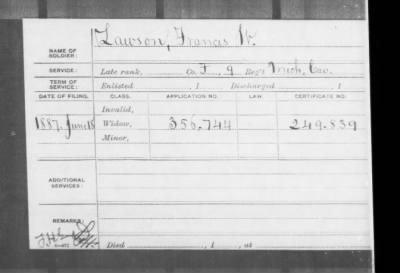 Lawson, Francis W.
NAME OF SOLDIER:
SERVICE: Late rank, Co. F, 9 Reg't Mich. Cav.
TERM OF SERVICE: Enlisted , 1 Discharged , 1
DATE OF FILING. CLASS. APPLICATION NO. LAW. CERTIFICATE NO.
Invalid,
1887, June 18 Widow, 356,744 249,839
Minor,
ADDITIONAL SERVICES:
REMARKS:
Died , 1 , at